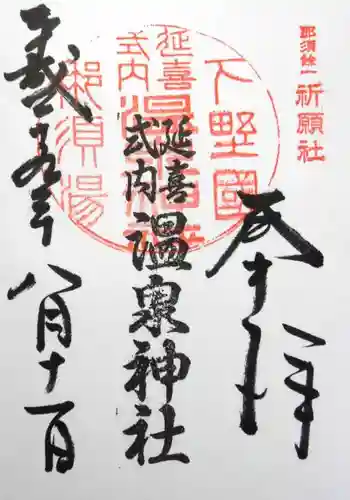 那須餘一
祈願社
奉拝
延喜
式内
温泉神社
平成十九年八月十一日
下野國
延喜
式内
温泉神社
那須湯